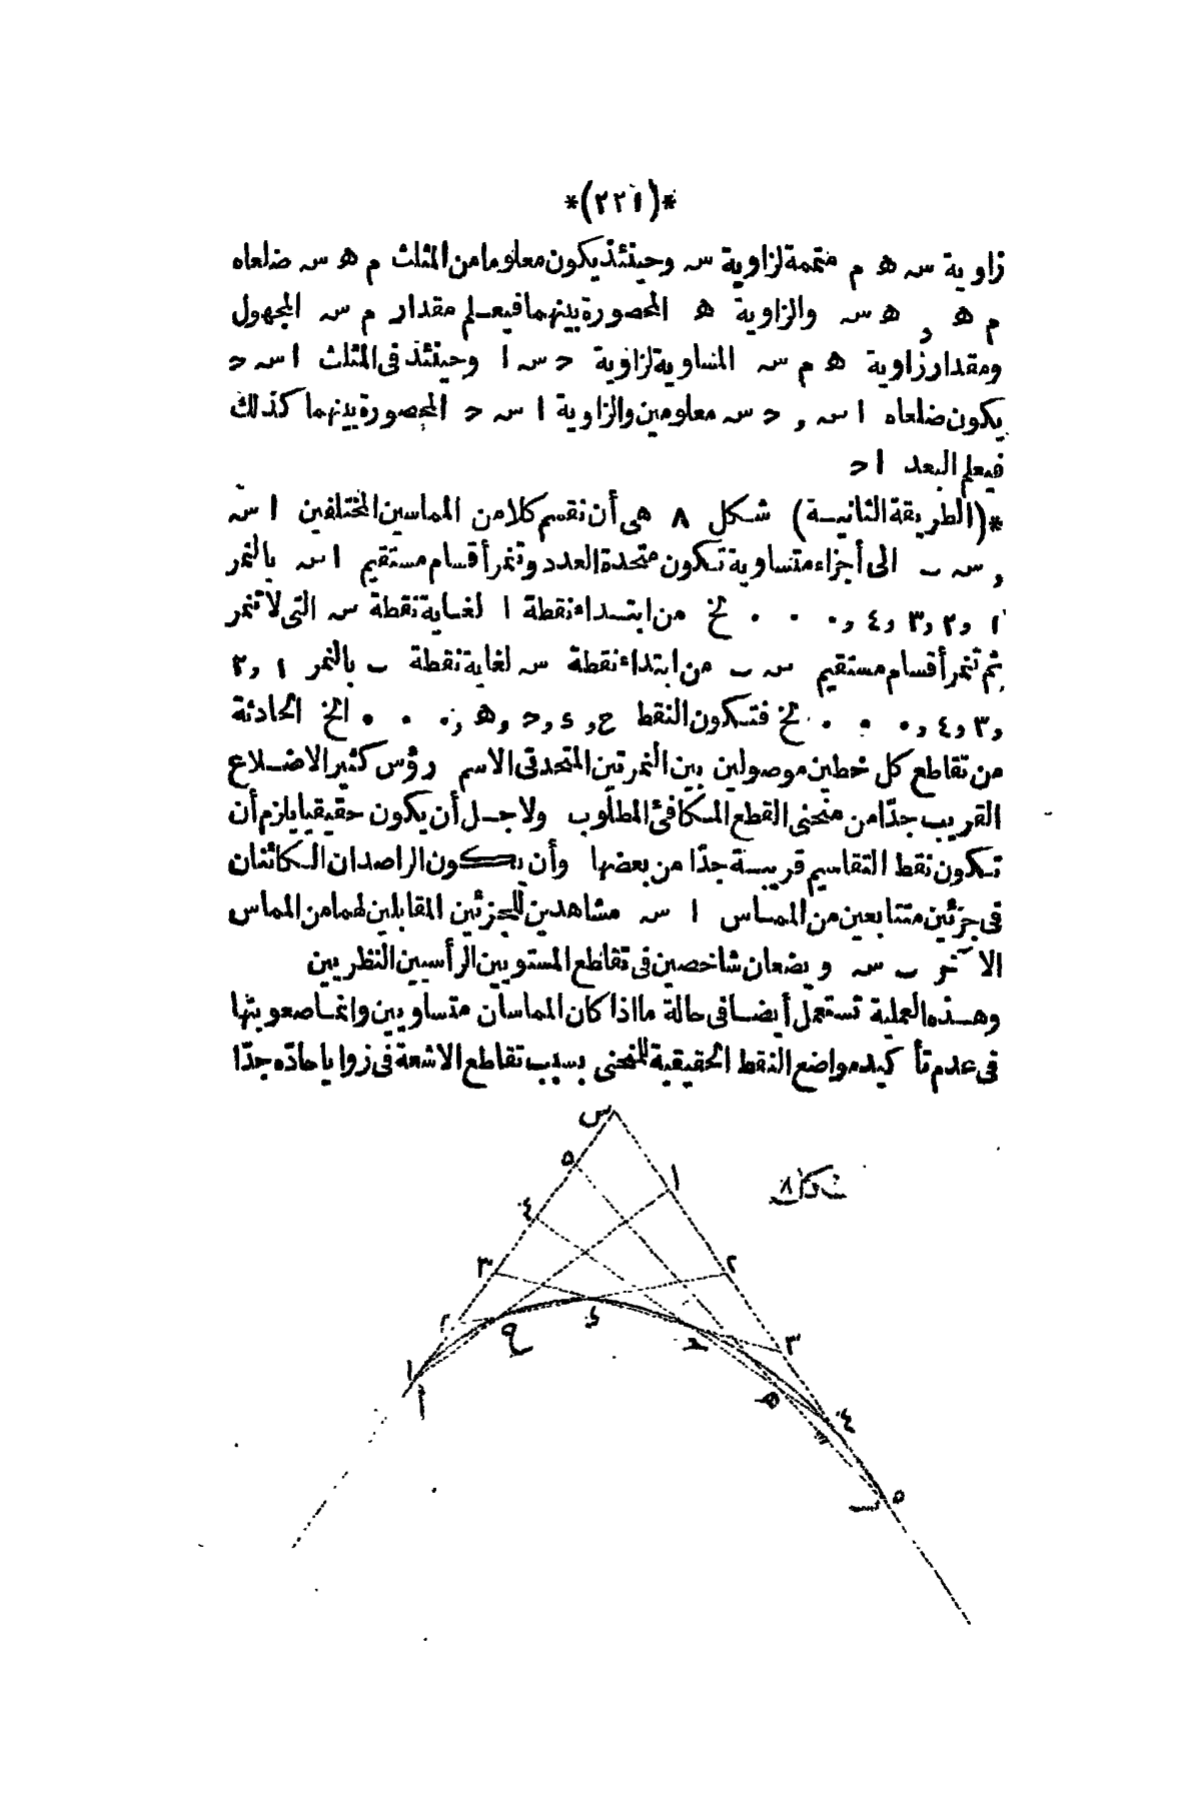 *(٢٢١)*
زاوية س ه م متممة لزاوية س وحينئذ يكون معلوما من المثلث م ه س ضلعاه
م ه و ه س والزاوية ه المحصورة بينهما فيعلم مقدار م س المجهول
ومقدار زاوية ه م س المساوية لزاوية د س ا وحينئذ فى المثلث ا س د
يكون ضلعاه ا س و د س معلومين والزاوية ا س د المحصورة بينهما كذلك
فيعلم البعد ا د
*(الطريقة الثانية) شكل ٨ هى أن نقسم كلا من المماسين المختلفين ا س
و س ب الى أجزاء متساوية تكون متحدة العدد وتنمر أقسام مستقيم ا س بالنمر
١ و٢ و٣ و٤ و . . . . لخ من ابتداء نقطة ا لغاية نقطة س التى لا تنمر
ثم تنمر أقسام مستقيم س ب من ابتداء نقطة س لغاية نقطة ب بالنمر ١ و٢
و٣ و٤ و . . . لخ فتكون النقط ح و ء و د و ه و . . . . الخ الحادثة
من تقاطع كل خطين موصولين بين النمرتين المتحدتى الاسم رؤس كثير الاضلاع
القريب جدّا من منحنى القطع المكافئ المطلوب ولاجل أن يكون حقيقيا يلزم أن
تكون نقط التقاسيم قريبة جدّا من بعضها وأن يكون الراصدان الكائنان
فى جزئين متتابعين من المماس ا س مشاهدين للجزئين المقابلين لهما من المماس
الآخر ب س ويضعان شاخصين فى تقاطع المستويين الرأسيين النظريين
وهذه العملية تستعمل أيضا فى حالة ما اذا كان المماسان متساويين وانما صعوبتها
فى عدم تأكيد مواضع النقط الحقيقية للمنحنى بسبب تقاطع الاشعة فى زوايا حادّه جدّا
س
شكل ٨
٥
١
٤
٣
٢
٢
ح
ء
د
٣
١
أ
ه
٤
ب
٥